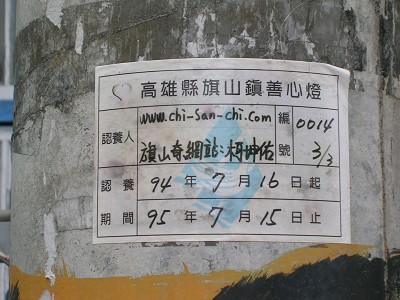 高雄縣旗山鎮善心燈
認養人 www.chi-san-chi.com 編號 0014
旗山奇網站:柯坤佑 3/3
認養 94 年 7 月 16 日起
期間 95 年 7 月 15 日止